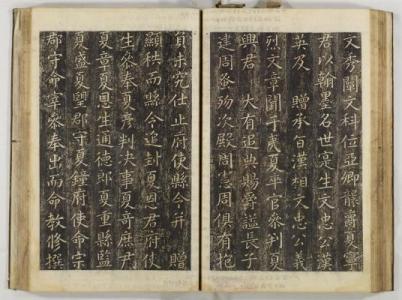 文秀闡文科位亞卿龍齋夏寧
君以翰墨名世寔生文忠公漢
英及 贈承旨漢相文忠公義
烈文章聞千歲夏平官參判夏
興君 大有遺典賜爵謚長子
建周蚤殀次殿周憲周俱有抱
負未究仕止府使縣令幷 贈
顯秩而縣令追封夏恩君府使
生參奉夏彦判決事夏奇庶尹
夏章夏恩生通德郎夏重縣監
夏盛夏璧郡守夏鐘府使命宗
郡守命宰參奉出而命敎修撰